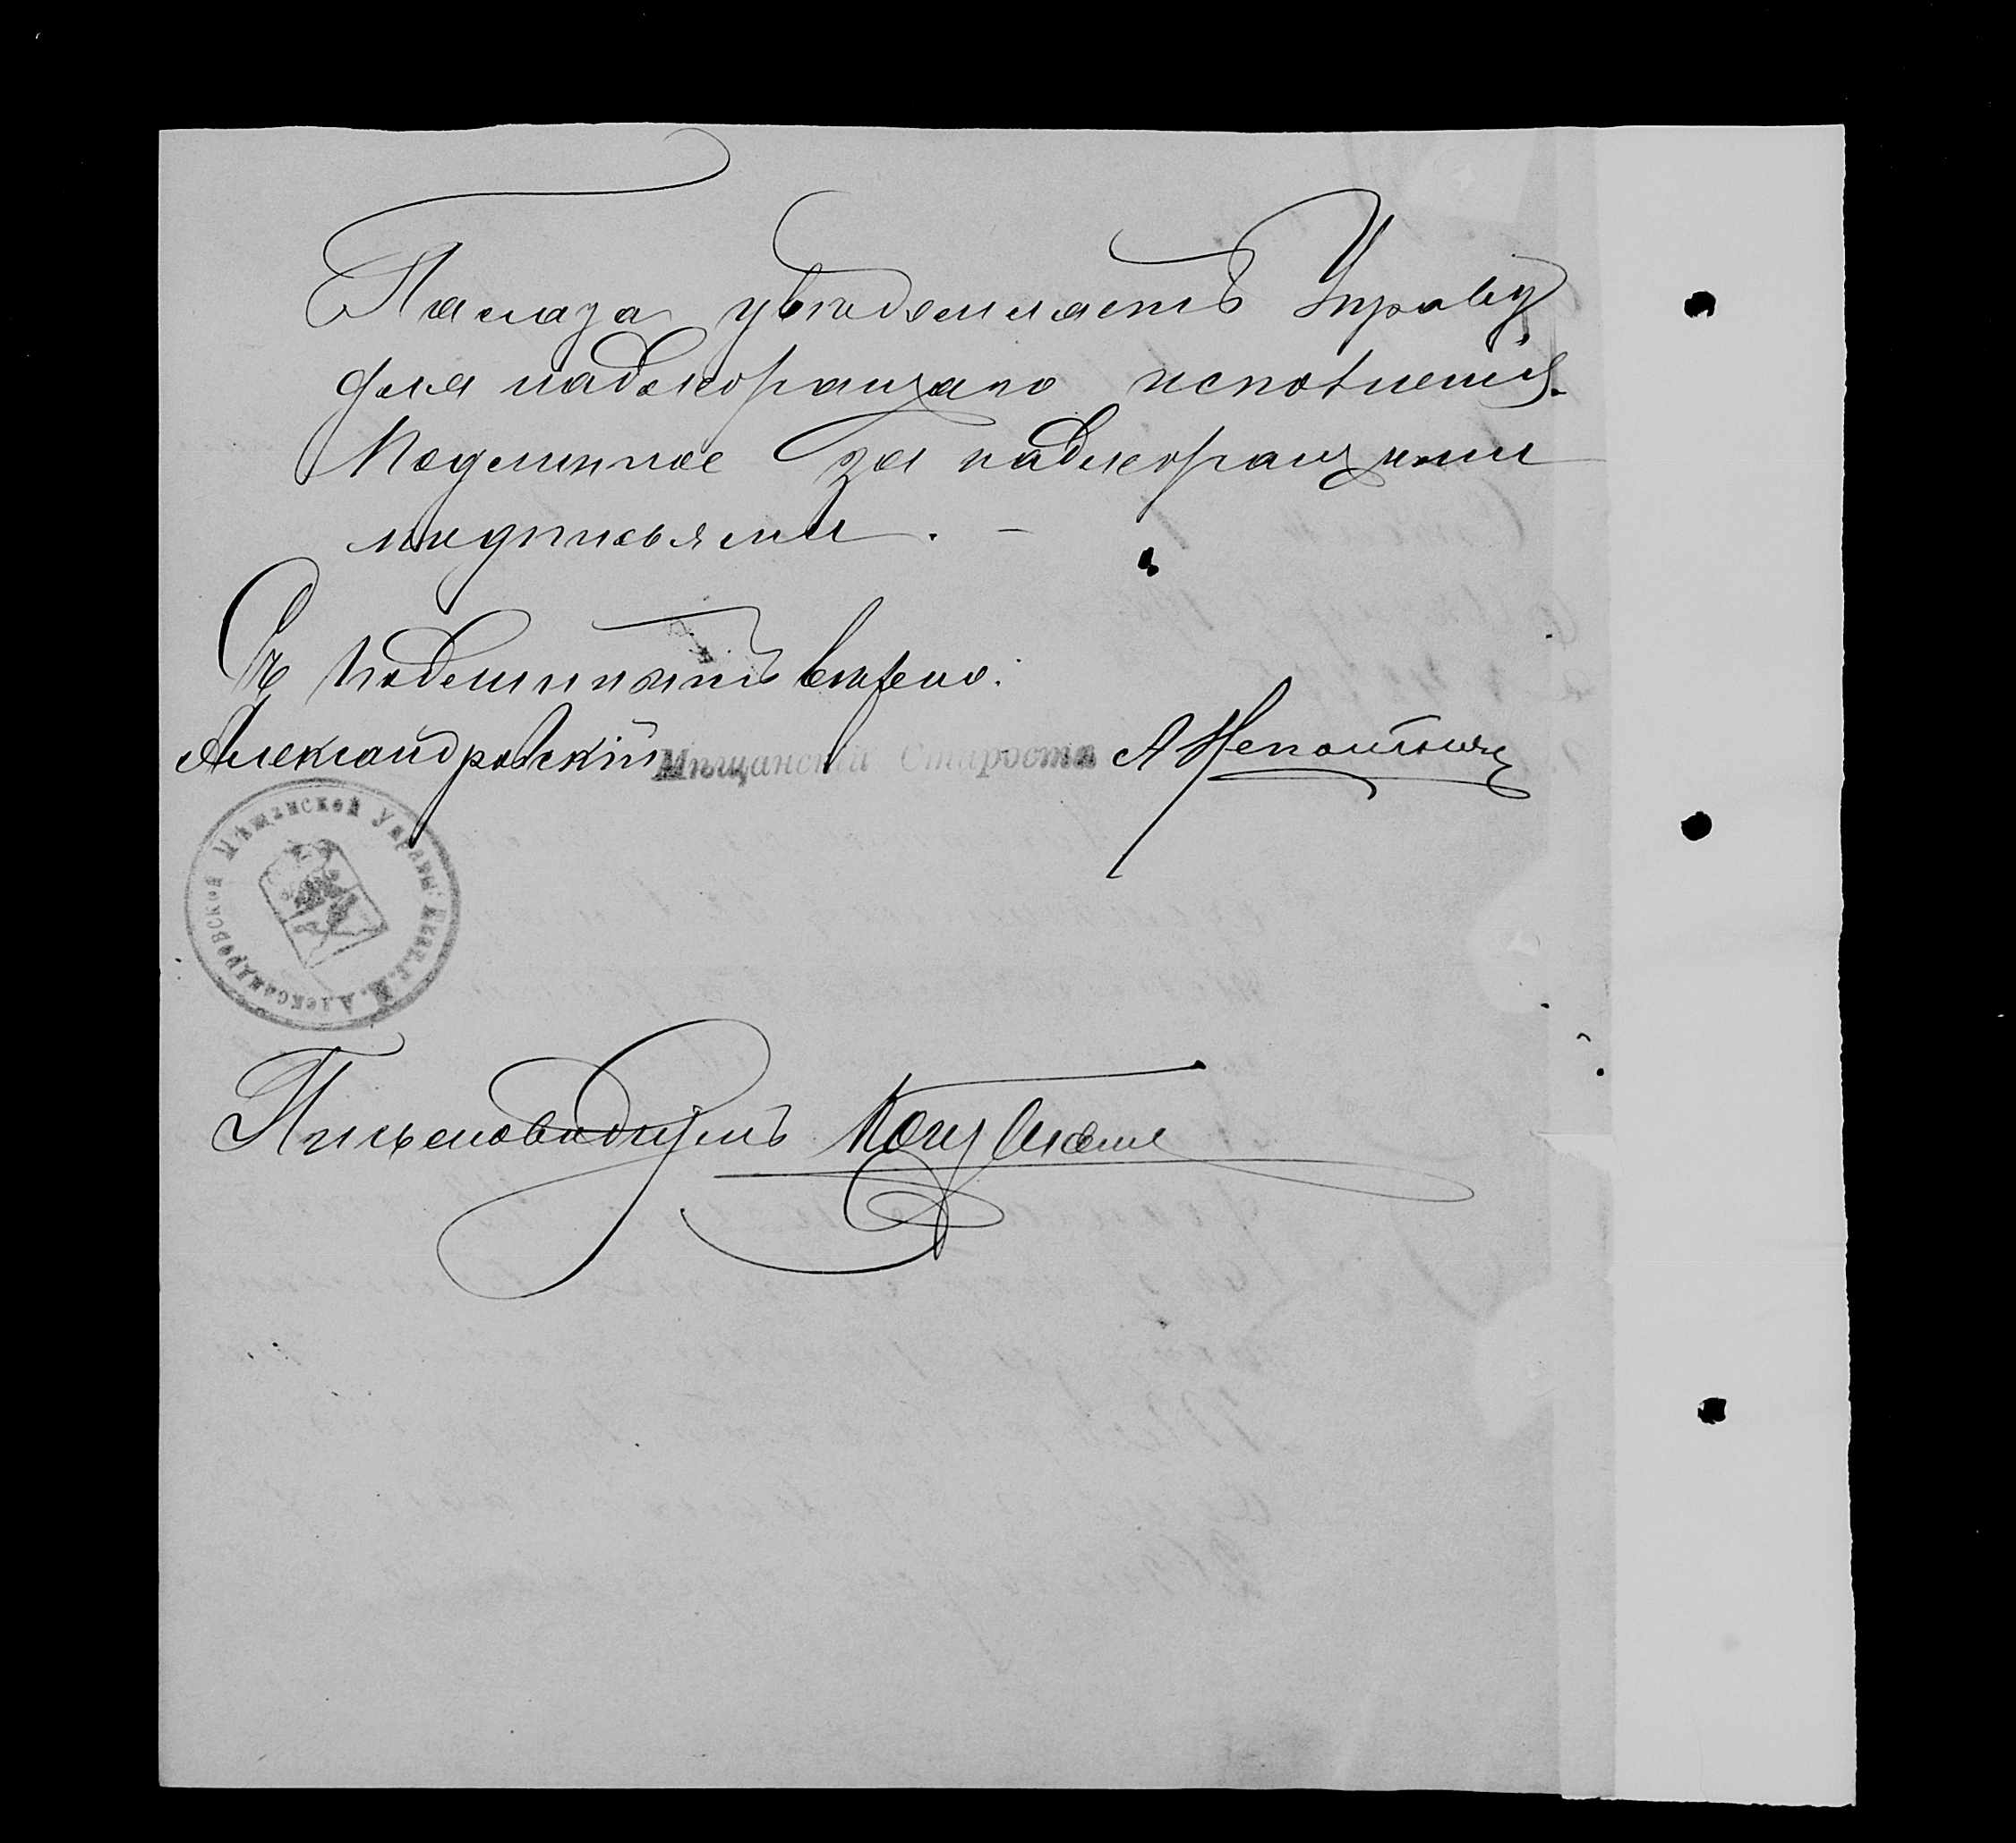 Палата увѣдомляетъ Управу
для надлежащаго исполненія.
Подлинное за надлежащими
подписями. —
Съ подлиннымъ вѣрно:
Александровскій Мѣщанскій Староста А
Мѣщанской Управы Екат. г. М. Александровской
Письмоводитель